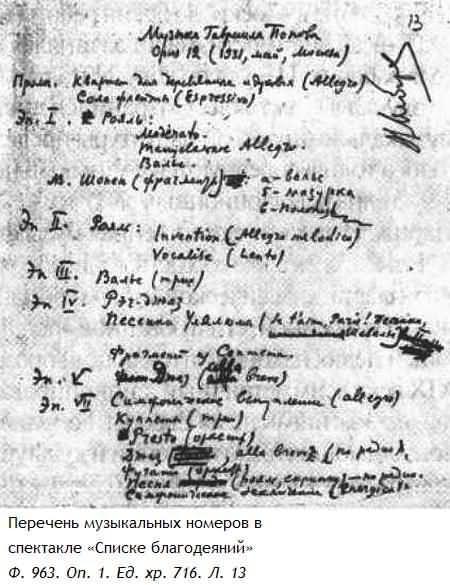 13
Музыка Гавриила Попова
Опус 12 (1931, май, Москва)
Пролог. Квартет для деревянных и (Allegro)
Соло флейты (Espressivo)
Эп. I. Рояль:
Moderato.
Танцевальное Allegro.
Вальс.
М. Шопен (фрагменты): а - вальс
б - мазурка
в - полонез
Эп II. Рояль:
Invention (Allegro melodico)
Vocalise (Lento)
Эп III. Вальс (трио)
Эп IV Рэг-джаз
Песенка Улялюма (Paris! Песенка Шевалье)
Фрагмент из Септета.
Эп. V Джаз (alla breve)
Эп. VII Симфоническое вступление (allegro)
Куплеты (трио)
Presto (оркестр)
Джаз alla breve (по радио),
Фугато (оркестр)
Песня (рояль, скрипку) — по радио.
Симфоническое заключение (Energico)
Перечень музыкальных номеров в
спектакле «Списке благодеяний»
Ф. 963. Оп. 1. Ед. хр. 716. Л. 13